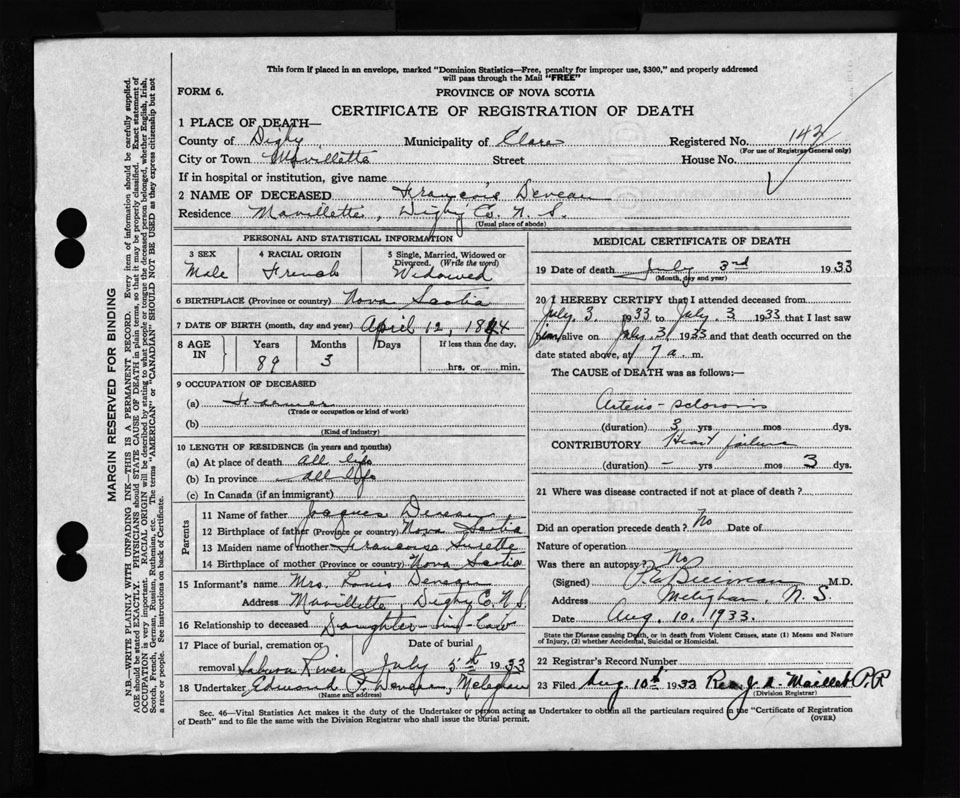 This form if placed in an envelope, marked "Dominion Statistics—Free, penalty for improper use, $300," and properly addressed
will pass through the Mail "FREE"
FORM 6.
PROVINCE OF NOVA SCOTIA
CERTIFICATE OF REGISTRATION OF DEATH
1 PLACE OF DEATH—
County of Digby Municipality of Clare Registered No. 143
(For use of Registrar General only)
City or Town Mavillette Street House No.
If in hospital or institution, give name
2 NAME OF DECEASED François Deveau
Residence Mavillette, Digby Co. N. S.
(Usual place of abode)
PERSONAL AND STATISTICAL INFORMATION
3 SEX 4 RACIAL ORIGIN 5 Single, Married, Widowed or
Divorced. (Write the word)
Male French Widowed
6 BIRTHPLACE (Province or country) Nova Scotia
7 DATE OF BIRTH (month, day and year) April 12, 1844
8 AGE IN Years Months Days If less than one day,
89 3 hrs. or min.
9 OCCUPATION OF DECEASED
(a) Farmer
(Trade or occupation or kind of work)
(b)
(Kind of industry)
10 LENGTH OF RESIDENCE (in years and months)
(a) At place of death all life
(b) In province all life
(c) In Canada (if an immigrant)
Parents
11 Name of father Jacques Deveau
12 Birthplace of father (Province or country) Nova Scotia
13 Maiden name of mother Francoise Surette
14 Birthplace of mother (Province or country) Nova Scotia
15 Informant's name Mrs. Louis Deveau
Address Mavillette, Digby Co. N.S.
16 Relationship to deceased Daughter-in-law
17 Place of burial, cremation or Date of burial
removal River July 5th 1933
18 Undertaker Edmond F. Deveau, Meteghan
(Name and address)
MEDICAL CERTIFICATE OF DEATH
19 Date of death July 3rd 1933
(Month, day and year)
20 I HEREBY CERTIFY that I attended deceased from
July. 3 1933 to July. 3 1933 that I last saw
him alive on July. 3, 1933 and that death occurred on the
date stated above, at 7 a. m.
The CAUSE of DEATH was as follows:—
Arterio-sclorosis
(duration) 3 yrs mos dys.
CONTRIBUTORY Heart failure
(duration) – yrs mos 3 dys.
21 Where was disease contracted if not at place of death?
Did an operation precede death? No Date of
Nature of operation
Was there an autopsy? No
(Signed) M.D.
Address Meteghan, N. S.
Date Aug. 10. 1933.
State the Disease causing Death, or in death from Violent Causes, state (1) Means and Nature
of Injury, (2) whether Accidental, Suicidal or Homicidal.
22 Registrar's Record Number
23 Filed Aug. 10th 1933 Rev. J. A. Maillet P.P.
(Division Registrar)
Sec. 46—Vital Statistics Act makes it the duty of the Undertaker or person acting as Undertaker to obtain all the particulars required in the "Certificate of Registration
of Death" and to file the same with the Division Registrar who shall issue the burial permit.
(OVER)
MARGIN RESERVED FOR BINDING
N.B.—WRITE PLAINLY WITH UNFADING INK—THIS IS A PERMANENT RECORD. Every item of information should be carefully supplied.
AGE should be stated EXACTLY. PHYSICIANS should STATE CAUSE OF DEATH in plain terms, so that it may be properly classified. Exact statement of
OCCUPATION is very important. RACIAL ORIGIN will be described by stating to what people or tongue the deceased person belonged, whether English, Irish,
Scotch, French, German, Russian, Ruthenian, etc. The terms "AMERICAN" or "CANADIAN" SHOULD NOT BE USED as they express citizenship but not
a race or people. See instructions on back of Certificate.